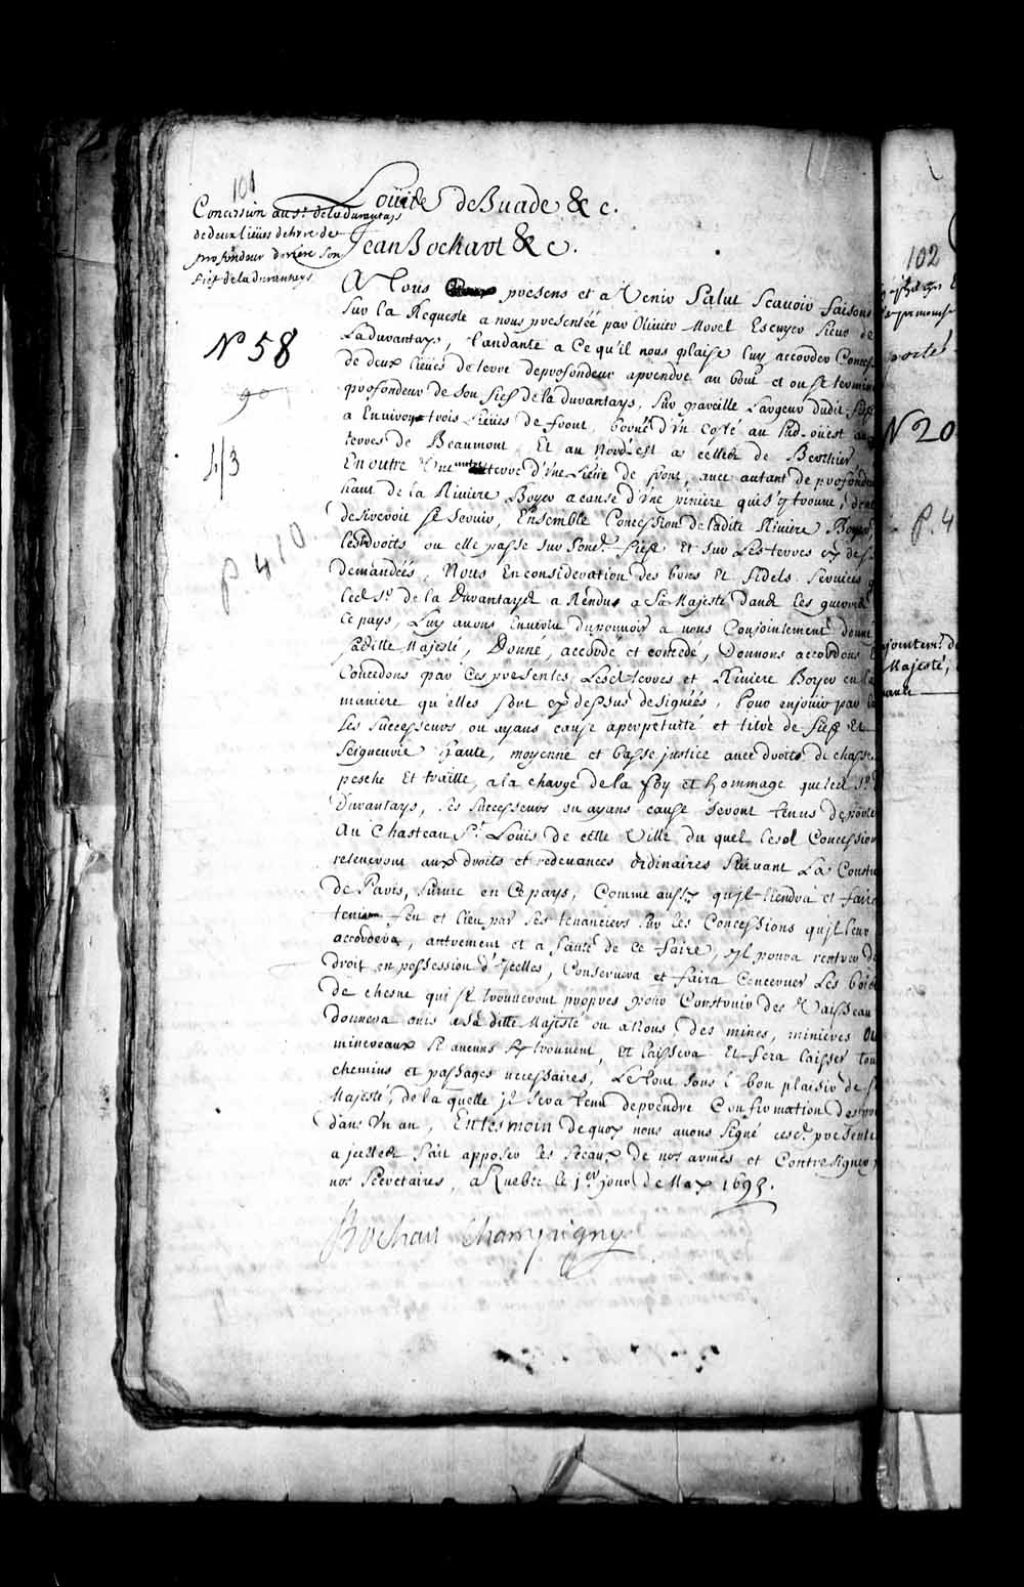 101
Concession au Sr. de la durantays
de deux lieües de terre de
profondeur derriere son
fief de la durantays
N 58
90
4/3
p. 410
Loüis de Buade &c.
Jean Bochart &c.
A Tous presens et a Venir Salut Scavoir faisons
Sur la Requeste a nous presentée par Olivier Morel Escuyer Sieur de
Ladurantays, tandante a Ce qu'il nous plaise luy accorder Conces
de deux lieües de terre de profondeur a prendre au bout et ou se termine
profondeur de son fief de la durantays, Sur pareille Largeur dudit fief
a Environ trois Lieües de front, borné d'un Costé au Sud-oüest aux
terres de Beaumont, Et au Nord-est a celles de Berthier
En outre Une autre terre d'une Lieüe de front, avec autant de profondeur
haut de la Riviere Boyer a cause d'une piniere qui s'y trouve, dont
desireroit se servir, Ensemble Concession de ladite Riviere Boyer,
les droits ou elle passe sur sond. fief Et sur Les terres cy dess
demandées, Nous En consideration des bons Et fidels services q
led. Sr. de la Durantaye a Rendus a Sa Majesté dans les guerres
Ce pays, Luy avons En vertu du pouvoir a nous Conjointement donné
sa ditte Majesté, Donné, accordé et concedé, Donnons accordons E
Concedons par Ces presentes, Lesd. terres et Riviere Boyer en la
maniere qu'elles sont cy dessus designées, Pour en jouir par l
Ses Successeurs, ou ayans cause a perpetuité et titre de fief Et
Seigneurie haute, moyenne et basse justice avec droits de chasse
pesche Et traitte, a la charge de la foy et hommage que led. Sr.
Durantays, ses Successeurs ou ayans cause seront tenus de porter
Au Chasteau St. Louis de cette Ville du quel lesd. Concession
releveront aux droits et redevances ordinaires Suivant La Coustu
de Paris, suivie en Ce pays, Comme aussy qu'il tiendra et faira
tenir feu et lieu par ses tenanciers sur les Concessions qu'il leur
accordera, autrement et a faute de ce faire, Il poura rentrer de
droit en possession d'Icelles, Conservera et faira Conserver Les bois
de chesne qui se trouveront propres pour Construire des Vaisseau
donnera avis a Sa ditte Majesté ou a Nous des mines, minieres ou
mineraux si aucuns s'y trouvent, Et laissera Et fera laisser tous
chemins et passages necessaires, Le tout sous le bon plaisir de S
Majesté, de laquelle il sera tenu de prendre Confirmation des pres
dans Un an, En tesmoin de quoy nous avons signé cesd. presentes
a icelles fait apposer les sceaux de nos armes et Contresigner p
nos Secretaires, a Quebec le 1er. jour de May 1693.
Bochart Champigny
102
N 20
p. 4
jointemt. d
Majesté,